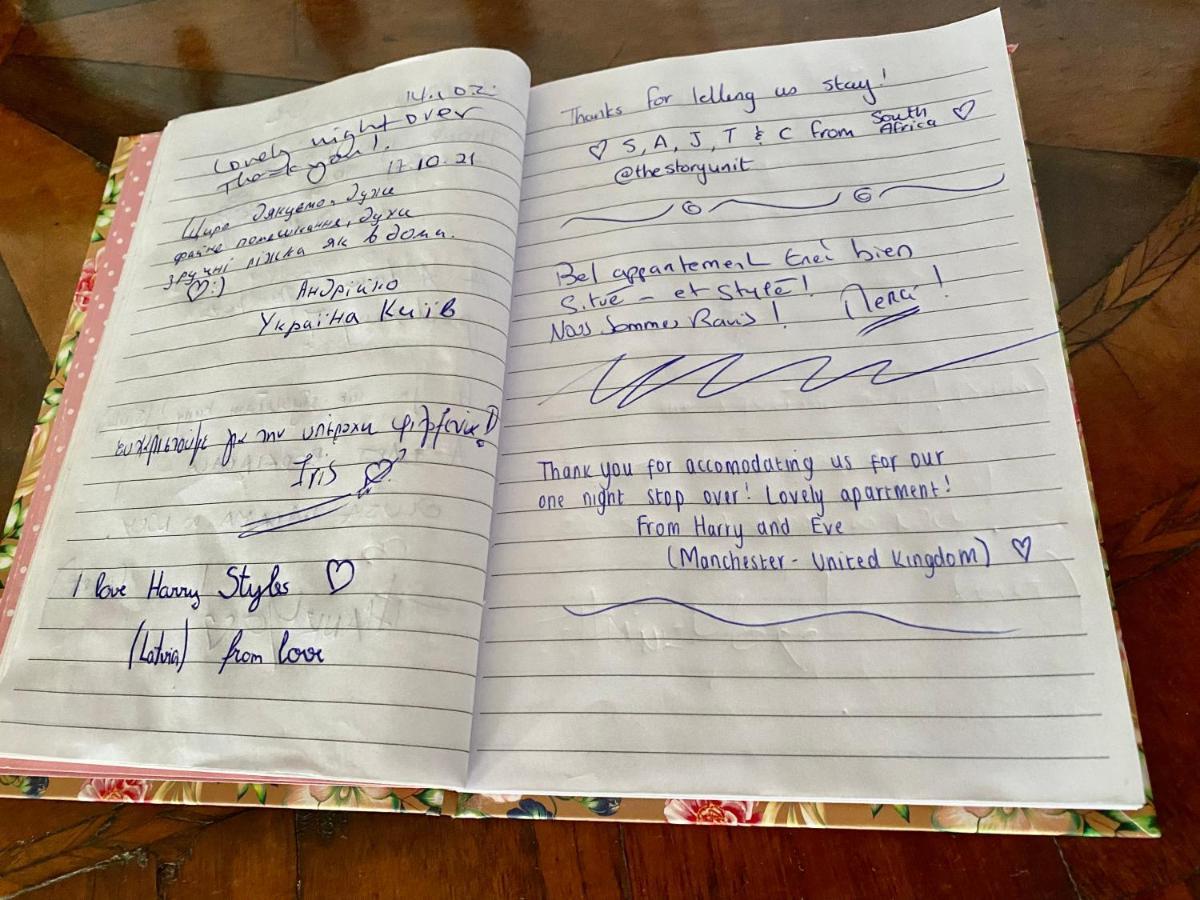 14.10 2.
Lovely night over
Thank you!.
17.10.21
Щиро дякуємо, дуже
файне помешкання, дужи
зручні ліжка як в дома.
♡:)
Андрійко
Україна Київ
ευχαριστούμε για την υπέροχη φιλοξενία!
Iris
I love Harry Styles ♡
(Latvia) from love
Thanks for letting us stay!
♡ S, A, J, T & C from South Africa ♡
@thestoryunit
Bel appartement très bien
Situé - et Stylé!
Nous Sommes Ravis! Merci!
Thank you for accomodating us for our
one night stop over! Lovely apartment!
From Harry and Eve
(Manchester - United Kingdom) ♡